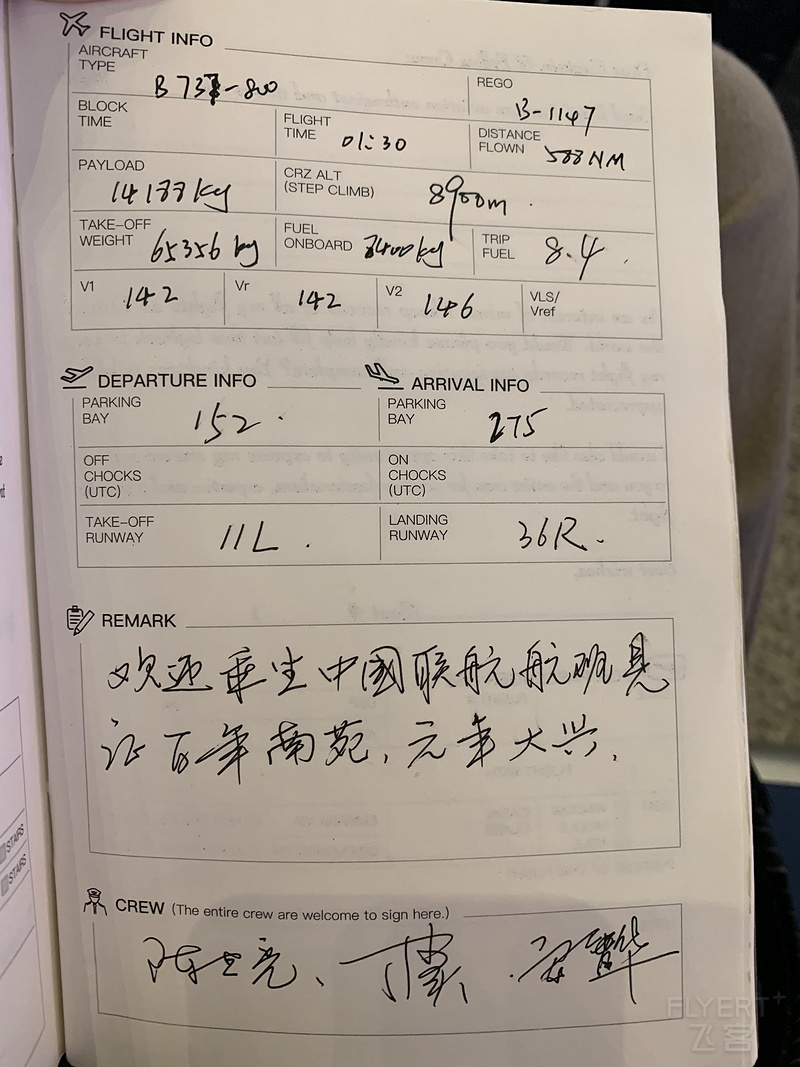 FLIGHT INFO
AIRCRAFT TYPE B737-800
REGO B-1147
BLOCK TIME
FLIGHT TIME 01:30
DISTANCE FLOWN 588NM
PAYLOAD 14188kg
CRZ ALT (STEP CLIMB) 8900m
TAKE-OFF WEIGHT 65356 kg
FUEL ONBOARD 8400kg
TRIP FUEL 8.4
V1 142
Vr 142
V2 146
VLS/Vref
DEPARTURE INFO
ARRIVAL INFO
PARKING BAY 152
PARKING BAY 275
OFF CHOCKS (UTC)
ON CHOCKS (UTC)
TAKE-OFF RUNWAY 11L
LANDING RUNWAY 36R
REMARK
欢迎乘坐中國联航航班見
证百年南苑，元年大兴.
CREW (The entire crew are welcome to sign here.)
STARS
STARS
FLYERT+
飞客